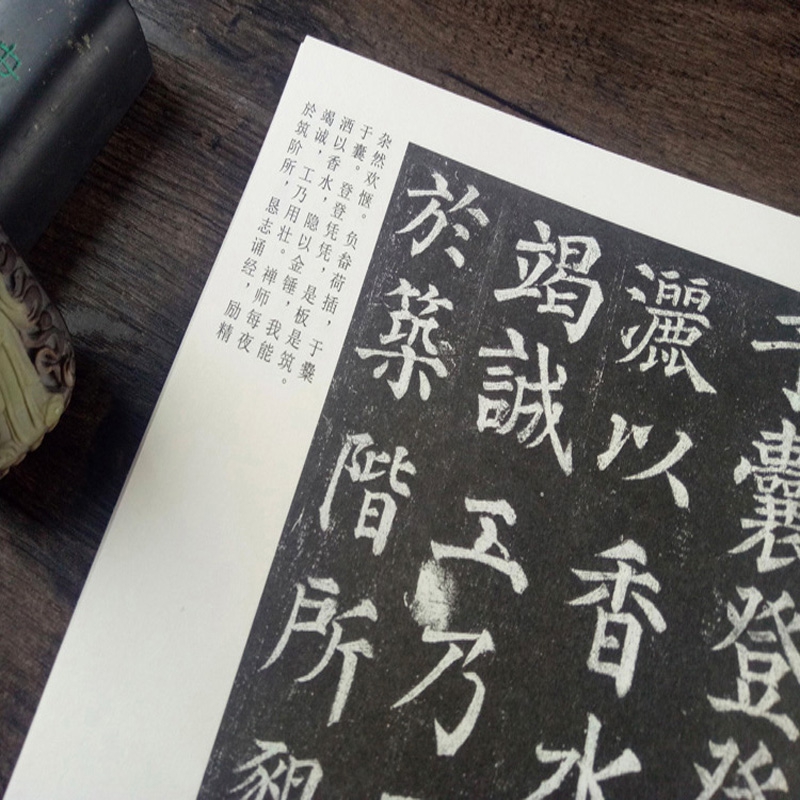 杂然欢惬。负畚荷插，于橐
于囊。登登凭凭，是板是筑。
洒以香水，隐以金锤，我能
竭诚，工乃用壮。禅师每夜
於筑阶所，恳志诵经，励精
于囊登登
灑以香水
竭誠工乃
於築階所